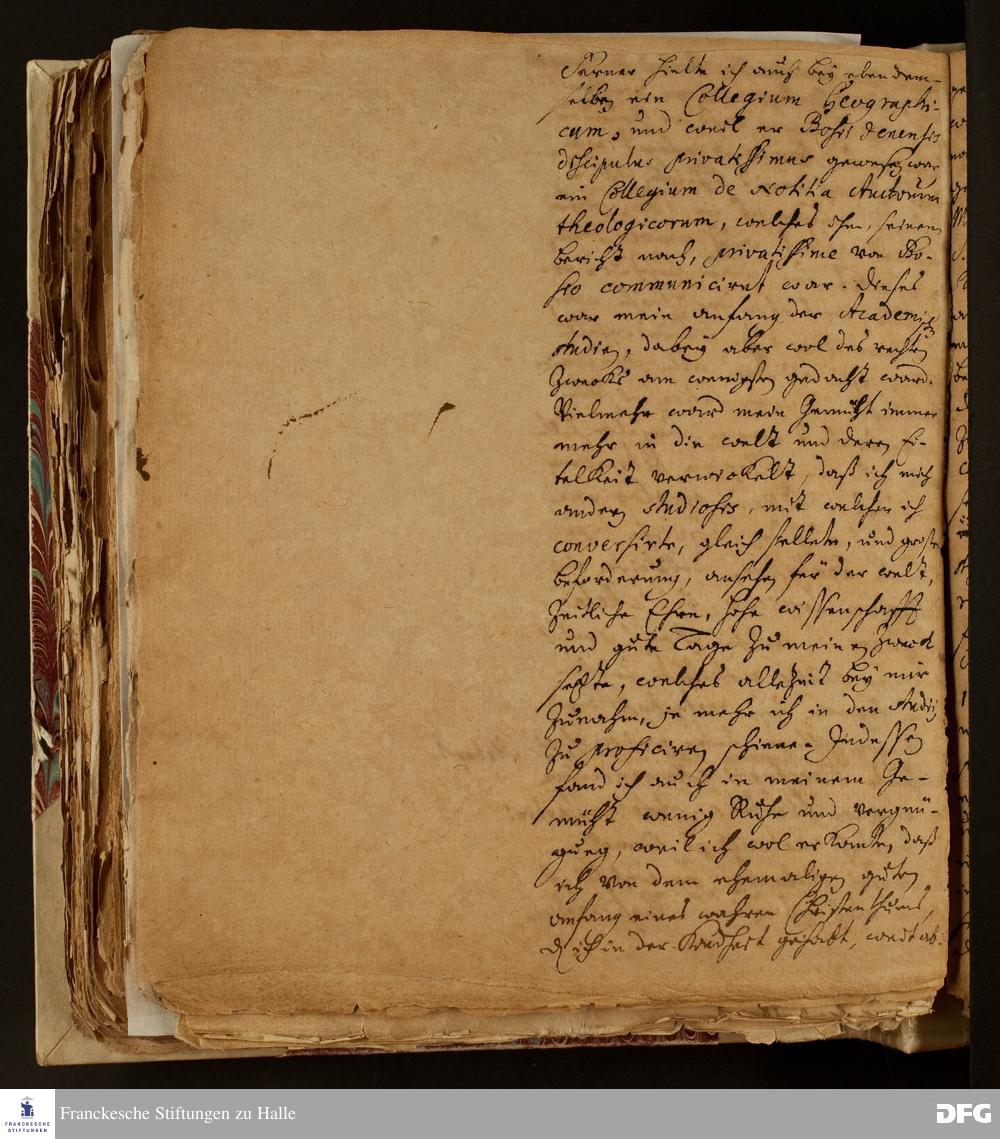 Ferner hielte ich auch bey eben dem-
selben ein Collegium Geographi-
cum, und weil er Bosii Jenensis
discipulus privatissimus gewesen war
ein Collegium de Notitia Auctorum
theologicorum, welches ihm, seinem
bericht nach, privatissime von Bo-
sio communiciret war. Dieses
war mein anfang der Academischen
studien, dabey aber wol des rechten
Zwecks am wenigsten gedacht ward.
Vielmehr ward mein Gemüht immer
mehr in die welt und deren Ei-
telkeit verwickelt, daß ich mich
andern studiosis, mit welchen ich
conversirte, gleich stellete, und große
beforderung, ansehen für der welt,
Zeitliche Ehre, hohe wissenschafft
und gute Tage zu meinen Zweck
setzte, welches allezeit bey mir
zunahm, je mehr ich in den studiis
zu proficiren schiene. Indessen
fand ich auch in meinem Ge-
müht wenig Ruhe und vergnü-
gueg, weil ich wol erkante, daß
ich von dem ehemaligen guten
anfang eines wahren Christenthums,
ich in der Kindheit gehabt, weit ab-
Franckesche Stiftungen zu Halle
FRANCKESCHE
STIFTUNGEN
DFG